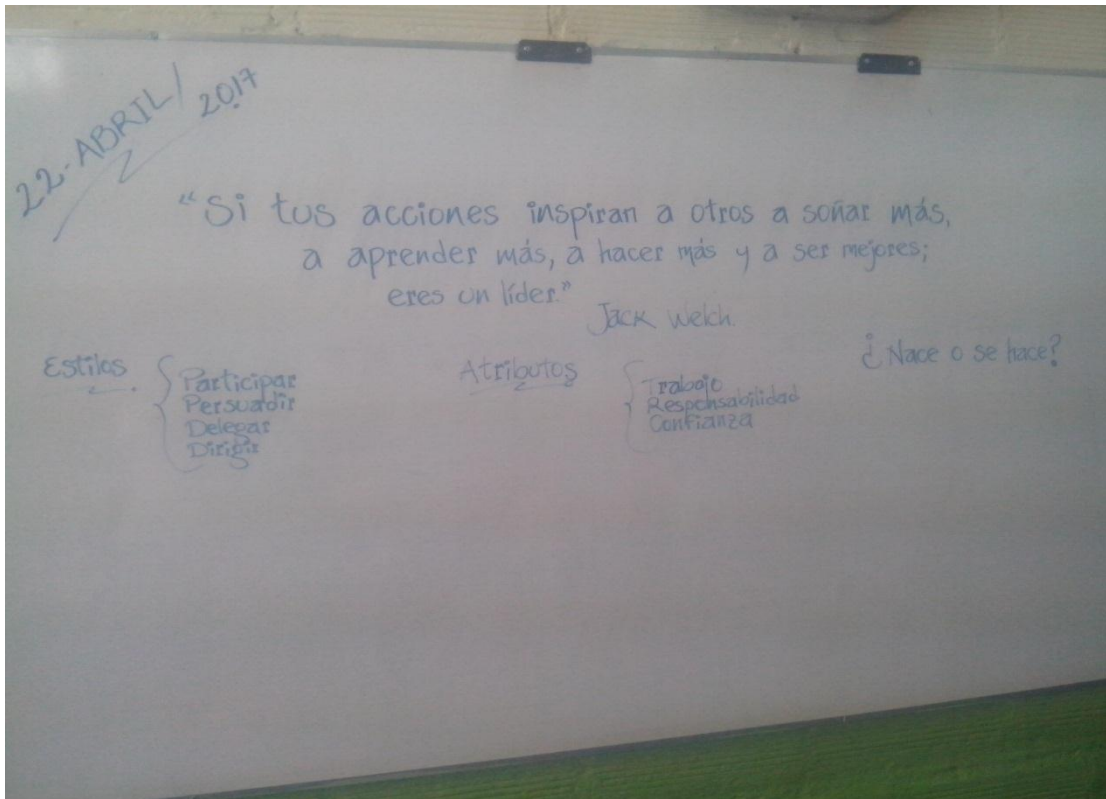 22-ABRIL/2017
"Si tus acciones inspiran a otros a soñar más,
a aprender más, a hacer más y a ser mejores;
eres un líder."
Jack Welch.
Estilos
Participar
Persuadir
Delegar
Dirigir
Atributos
Trabajo
Responsabilidad
Confianza
¿Nace o se hace?